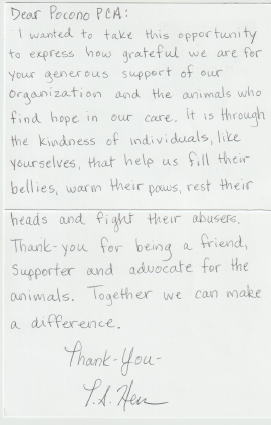 Dear Pocono PCA:
I wanted to take this opportunity
to express how grateful we are for
your generous support of our
organization and the animals who
find hope in our care. It is through
the kindness of individuals, like
yourselves, that help us fill their
bellies, warm their paws, rest their
heads and fight their abusers.
Thank-you for being a friend,
supporter and advocate for the
animals. Together we can make
a difference.
Thank-You-